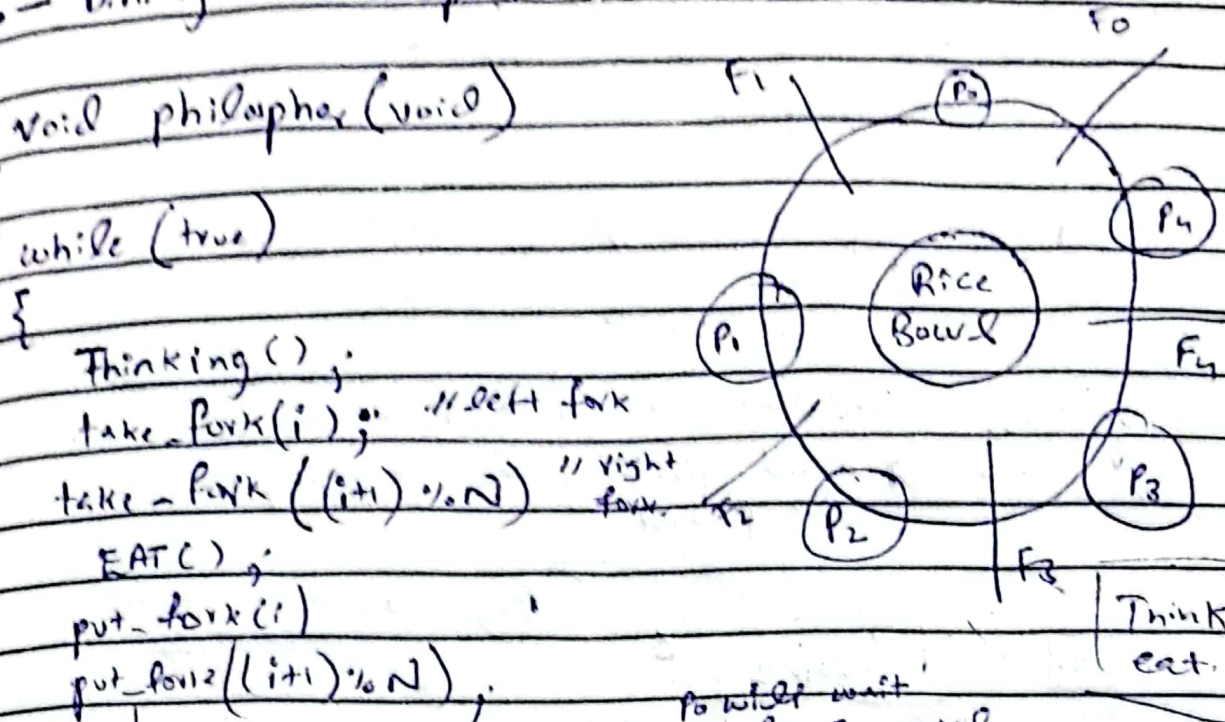 void philospher (void)
while (true)
{
Thinking () ;
take_fork(i) ; // left fork
take - fork ((i+1) % N) // right
fork.
EAT() ;
put_fork(i)
put_fork((i+1) % N) ;
F0
F1
P0
P4
Rice
Bowl
P1
F4
P3
F2
P2
F3
Think
eat.
P0 will wait